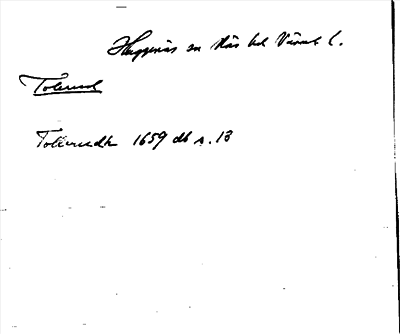 Huggenäs sn Näs hd Värml l.
Tolerud
Tollerudh 1659 db s. 13